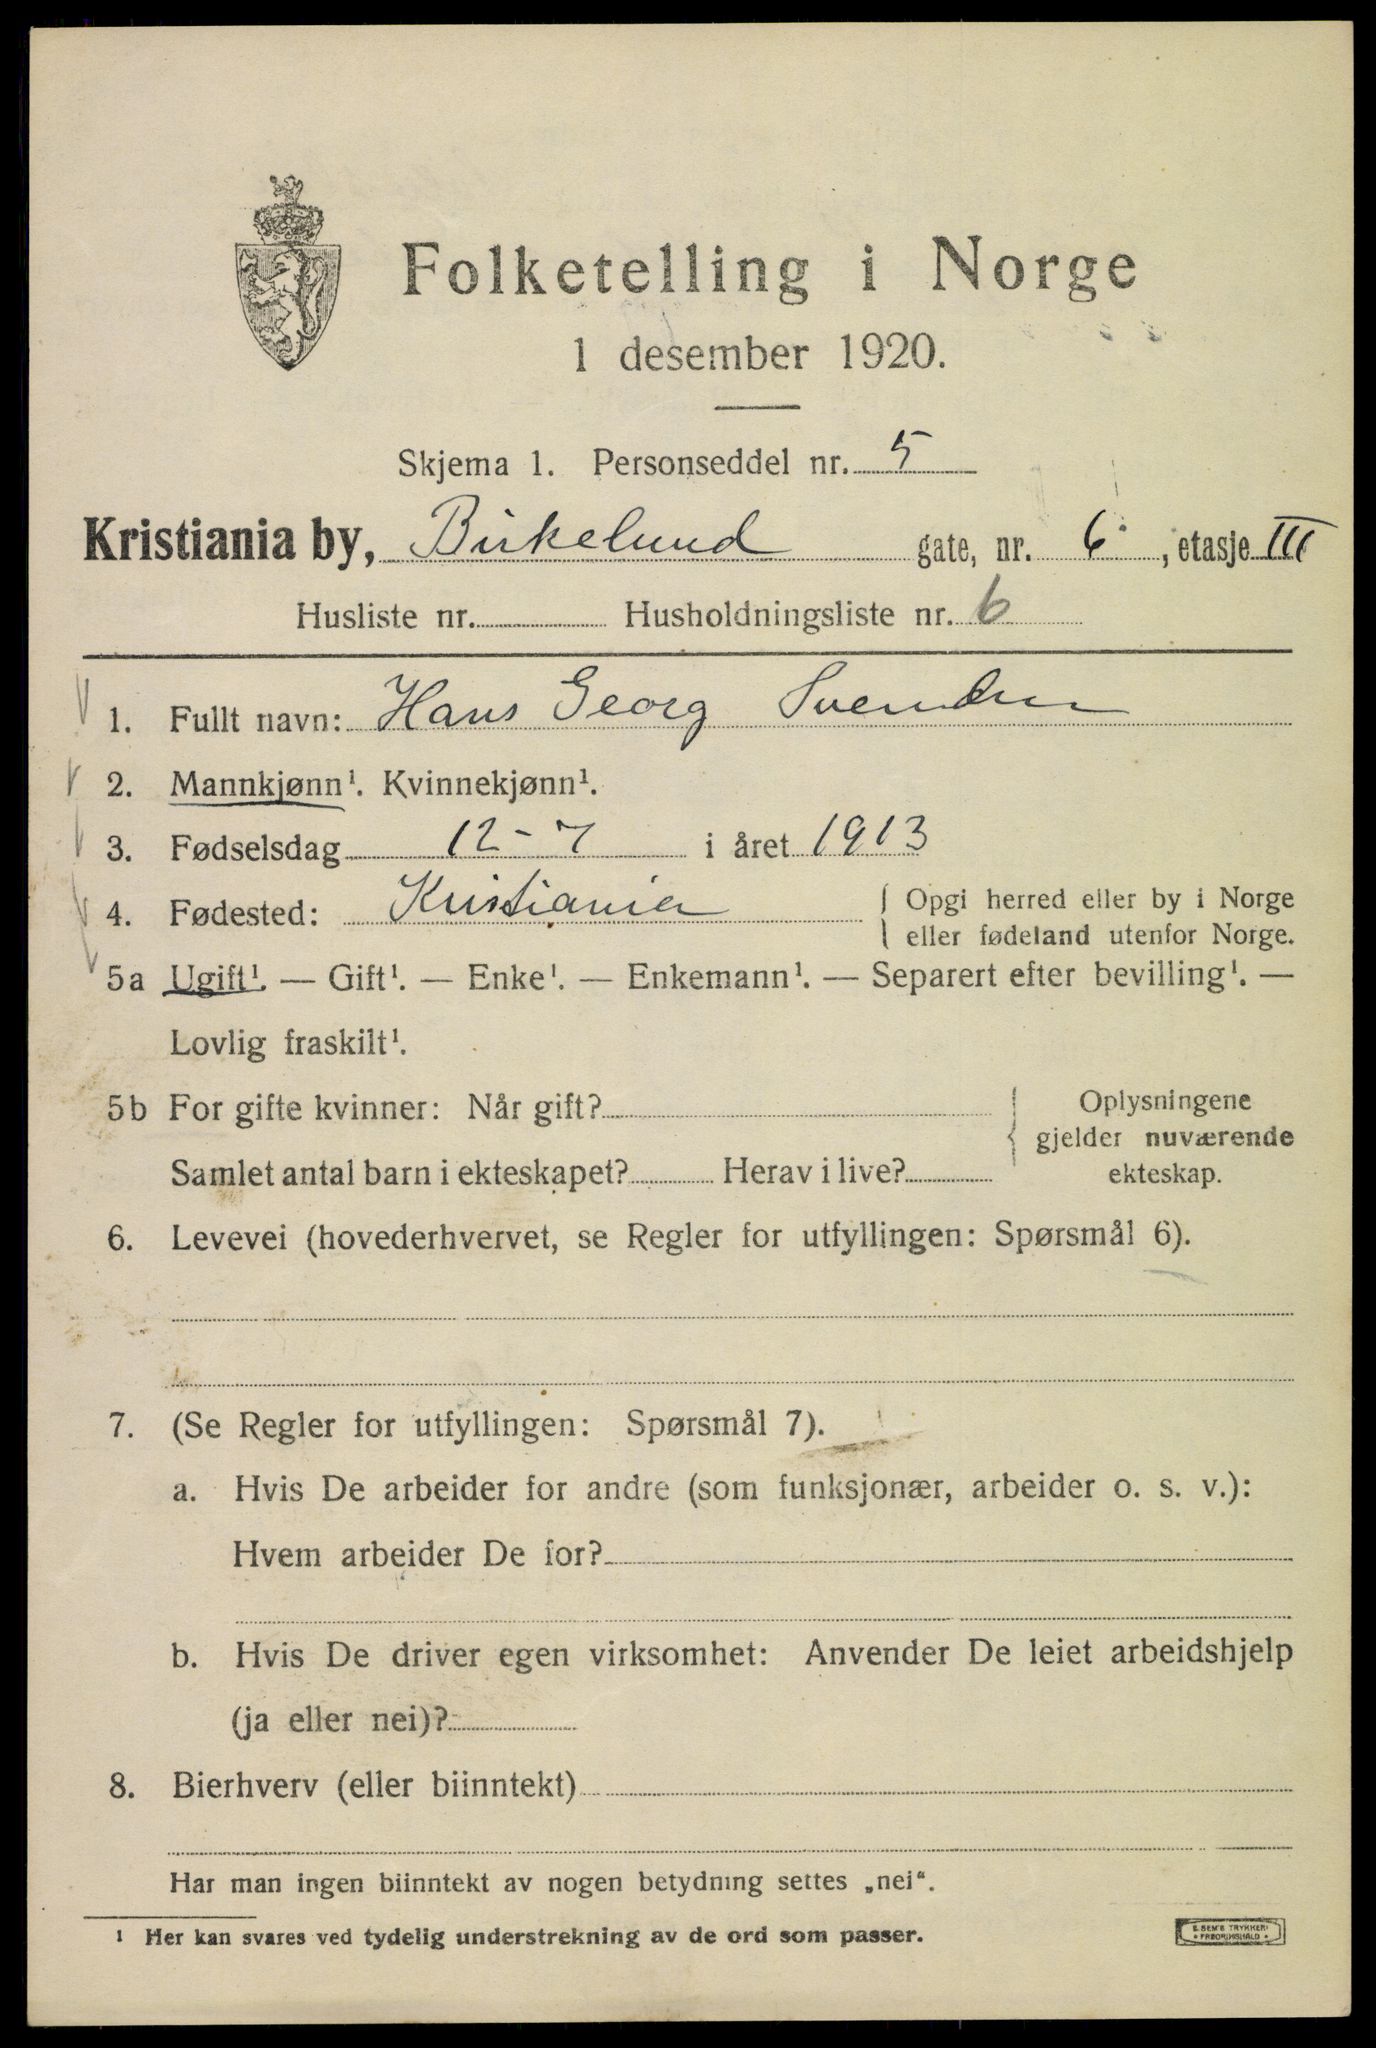 Folketelling i Norge
1 desember 1920.
Skjema 1. Personseddel nr. 5
Kristiania by, Birkelund gate, nr. 6, etasje III
Husliste nr. Husholdningsliste nr. 6
1. Fullt navn: Hans Georg Svendsen
2. Mannkjønn¹. Kvinnekjønn¹.
3. Fødselsdag 12-7 i året 1913
4. Fødested: Kristiania { Opgi herred eller by i Norge
eller fødeland utenfor Norge.
5a Ugift¹. — Gift¹. — Enke¹. — Enkemann¹. — Separert efter bevilling¹. —
Lovlig fraskilt¹.
5b For gifte kvinner: Når gift? { Oplysningene
gjelder nuværende
Samlet antal barn i ekteskapet? Herav i live? ekteskap.
6. Levevei (hovederhvervet, se Regler for utfyllingen: Spørsmål 6).
7. (Se Regler for utfyllingen: Spørsmål 7).
a. Hvis De arbeider for andre (som funksjonær, arbeider o. s. v.):
Hvem arbeider De for?
b. Hvis De driver egen virksomhet: Anvender De leiet arbeidshjelp
(ja eller nei)?
8. Bierhverv (eller biinntekt)
Har man ingen biinntekt av nogen betydning settes „nei“.
¹ Her kan svares ved tydelig understrekning av de ord som passer.
E. SEM'S TRYKKERI
• FREDRIKSHALD •